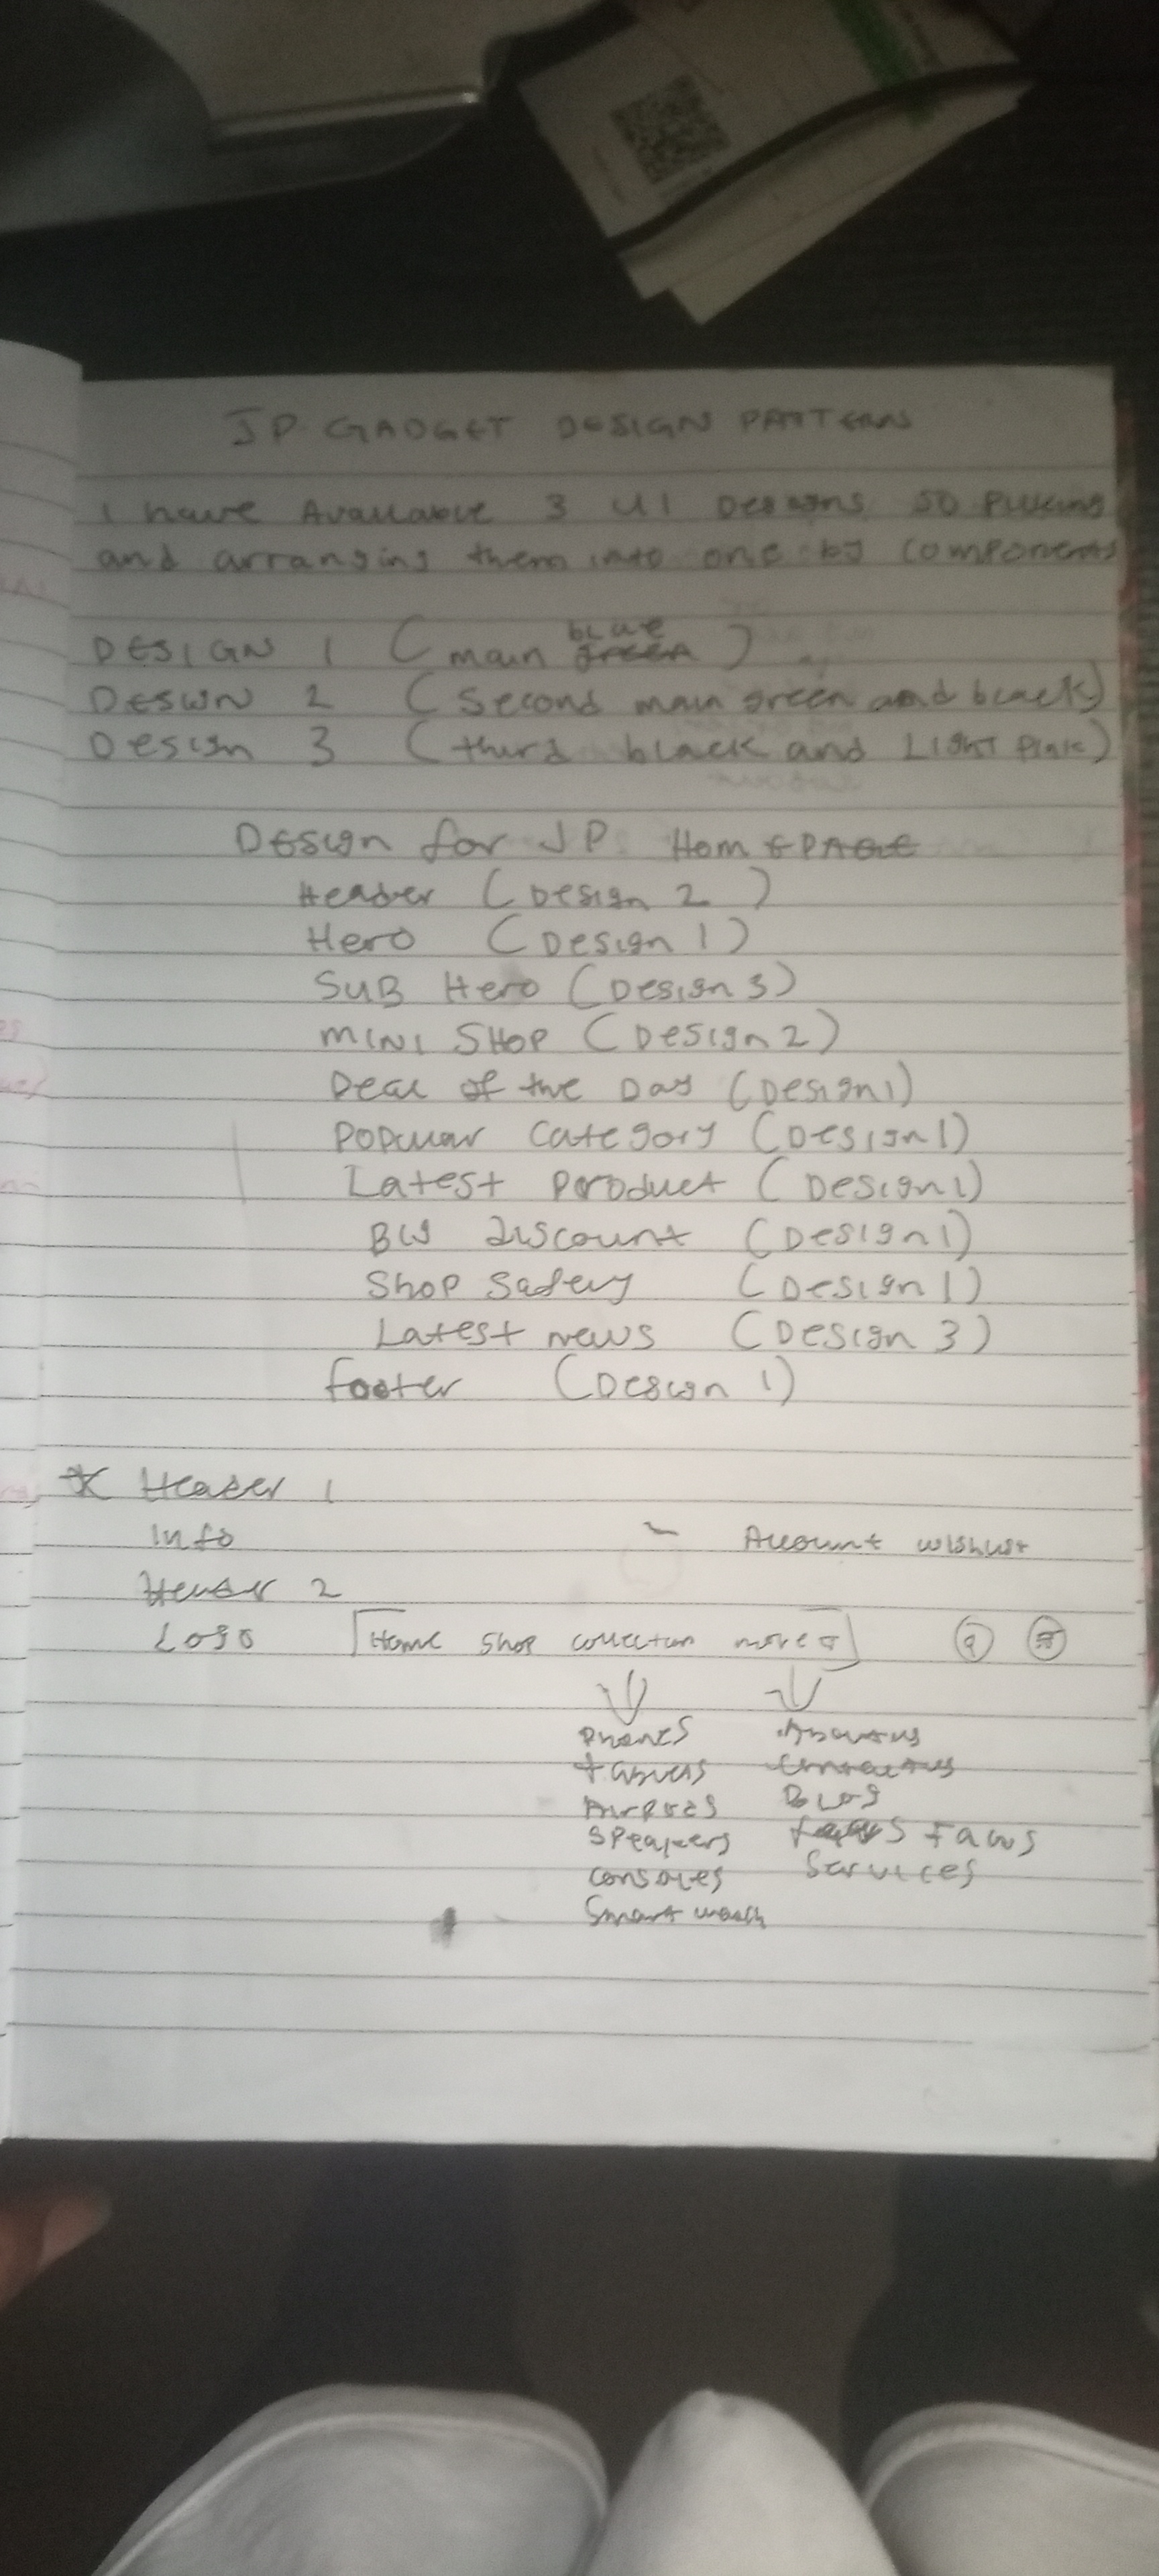 JP GADGET DESIGN PATTERN
I have Available 3 UI Designs so picking
and arranging them into one by components
DESIGN 1 (main blue green)
DESIGN 2 (Second main green and black)
Design 3 (third black and LIGHT Pink)
Design for JP HomEPAGE
Header (Design 2)
Hero (Design 1)
SUB Hero (Design 3)
MINI SHOP (Design 2)
Deal of the Day (Design 1)
Popular Category (Design 1)
Latest Product (Design 1)
Big discount (Design 1)
Shop Safely (Design 1)
Latest news (Design 3)
footer (Design 1)
Header 1
Info Account wishlist
Header 2
Logo Home Shop collection more
Phones About us
tablets Contact us
Airpods Blog
Speakers Faqs
consoles Services
Smart watch